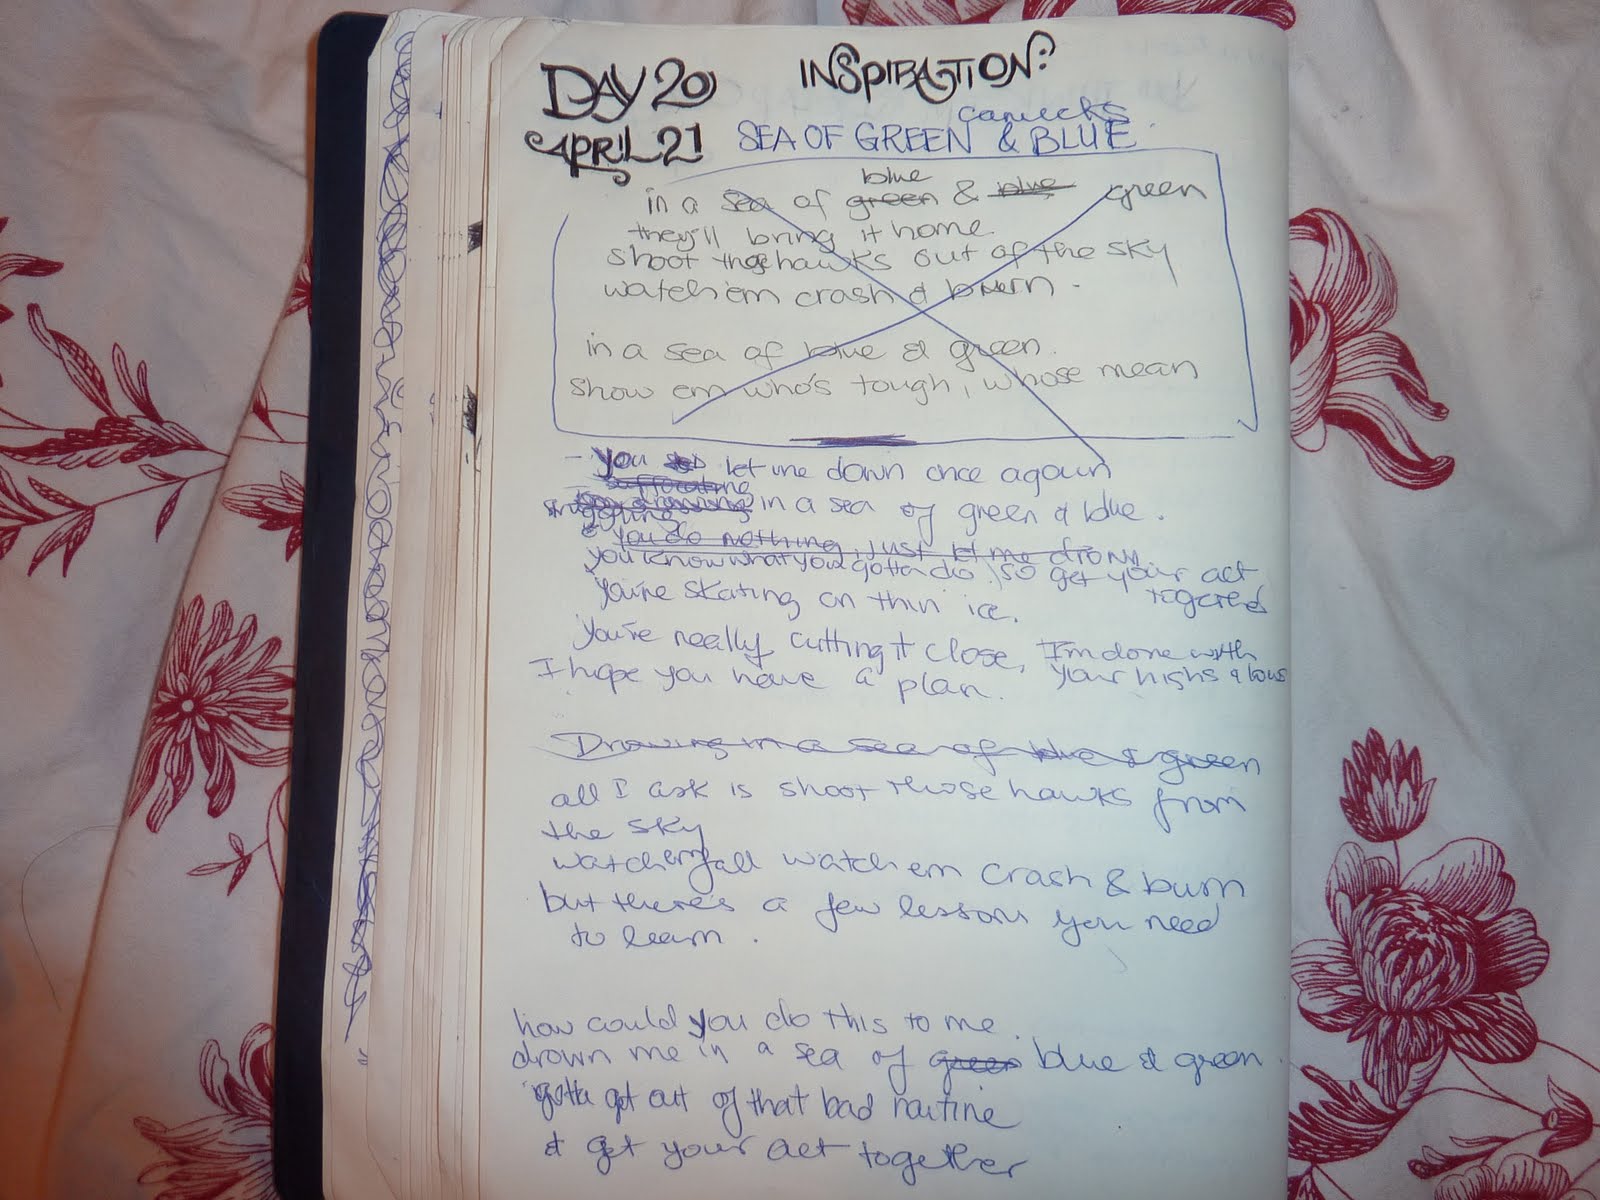 DAY 20 INSPIRATION:
APRIL 21 canucks
SEA OF GREEN & BLUE
blue
in a sea of green & blue green
they'll bring it home
shoot those hawks out of the sky
watch em crash & burn -
in a sea of blue & green.
show em who's tough, whose mean
- you let me down once again
suffocating
drowning in a sea of green & blue.
struggling
you do nothing, just let me drown
you know what you gotta do so get your act
together
You're skating on thin ice.
you're really cutting it close, I'm done with
I hope you have a plan. your highs & lows
Drowning in a sea of blue & green
all I ask is shoot those hawks from
the sky
watch em fall watch em crash & burn
but there's a few lessons you need
to learn.
how could you do this to me.
drown me in a sea of green blue & green.
gotta get out of that bad routine
& get your act together